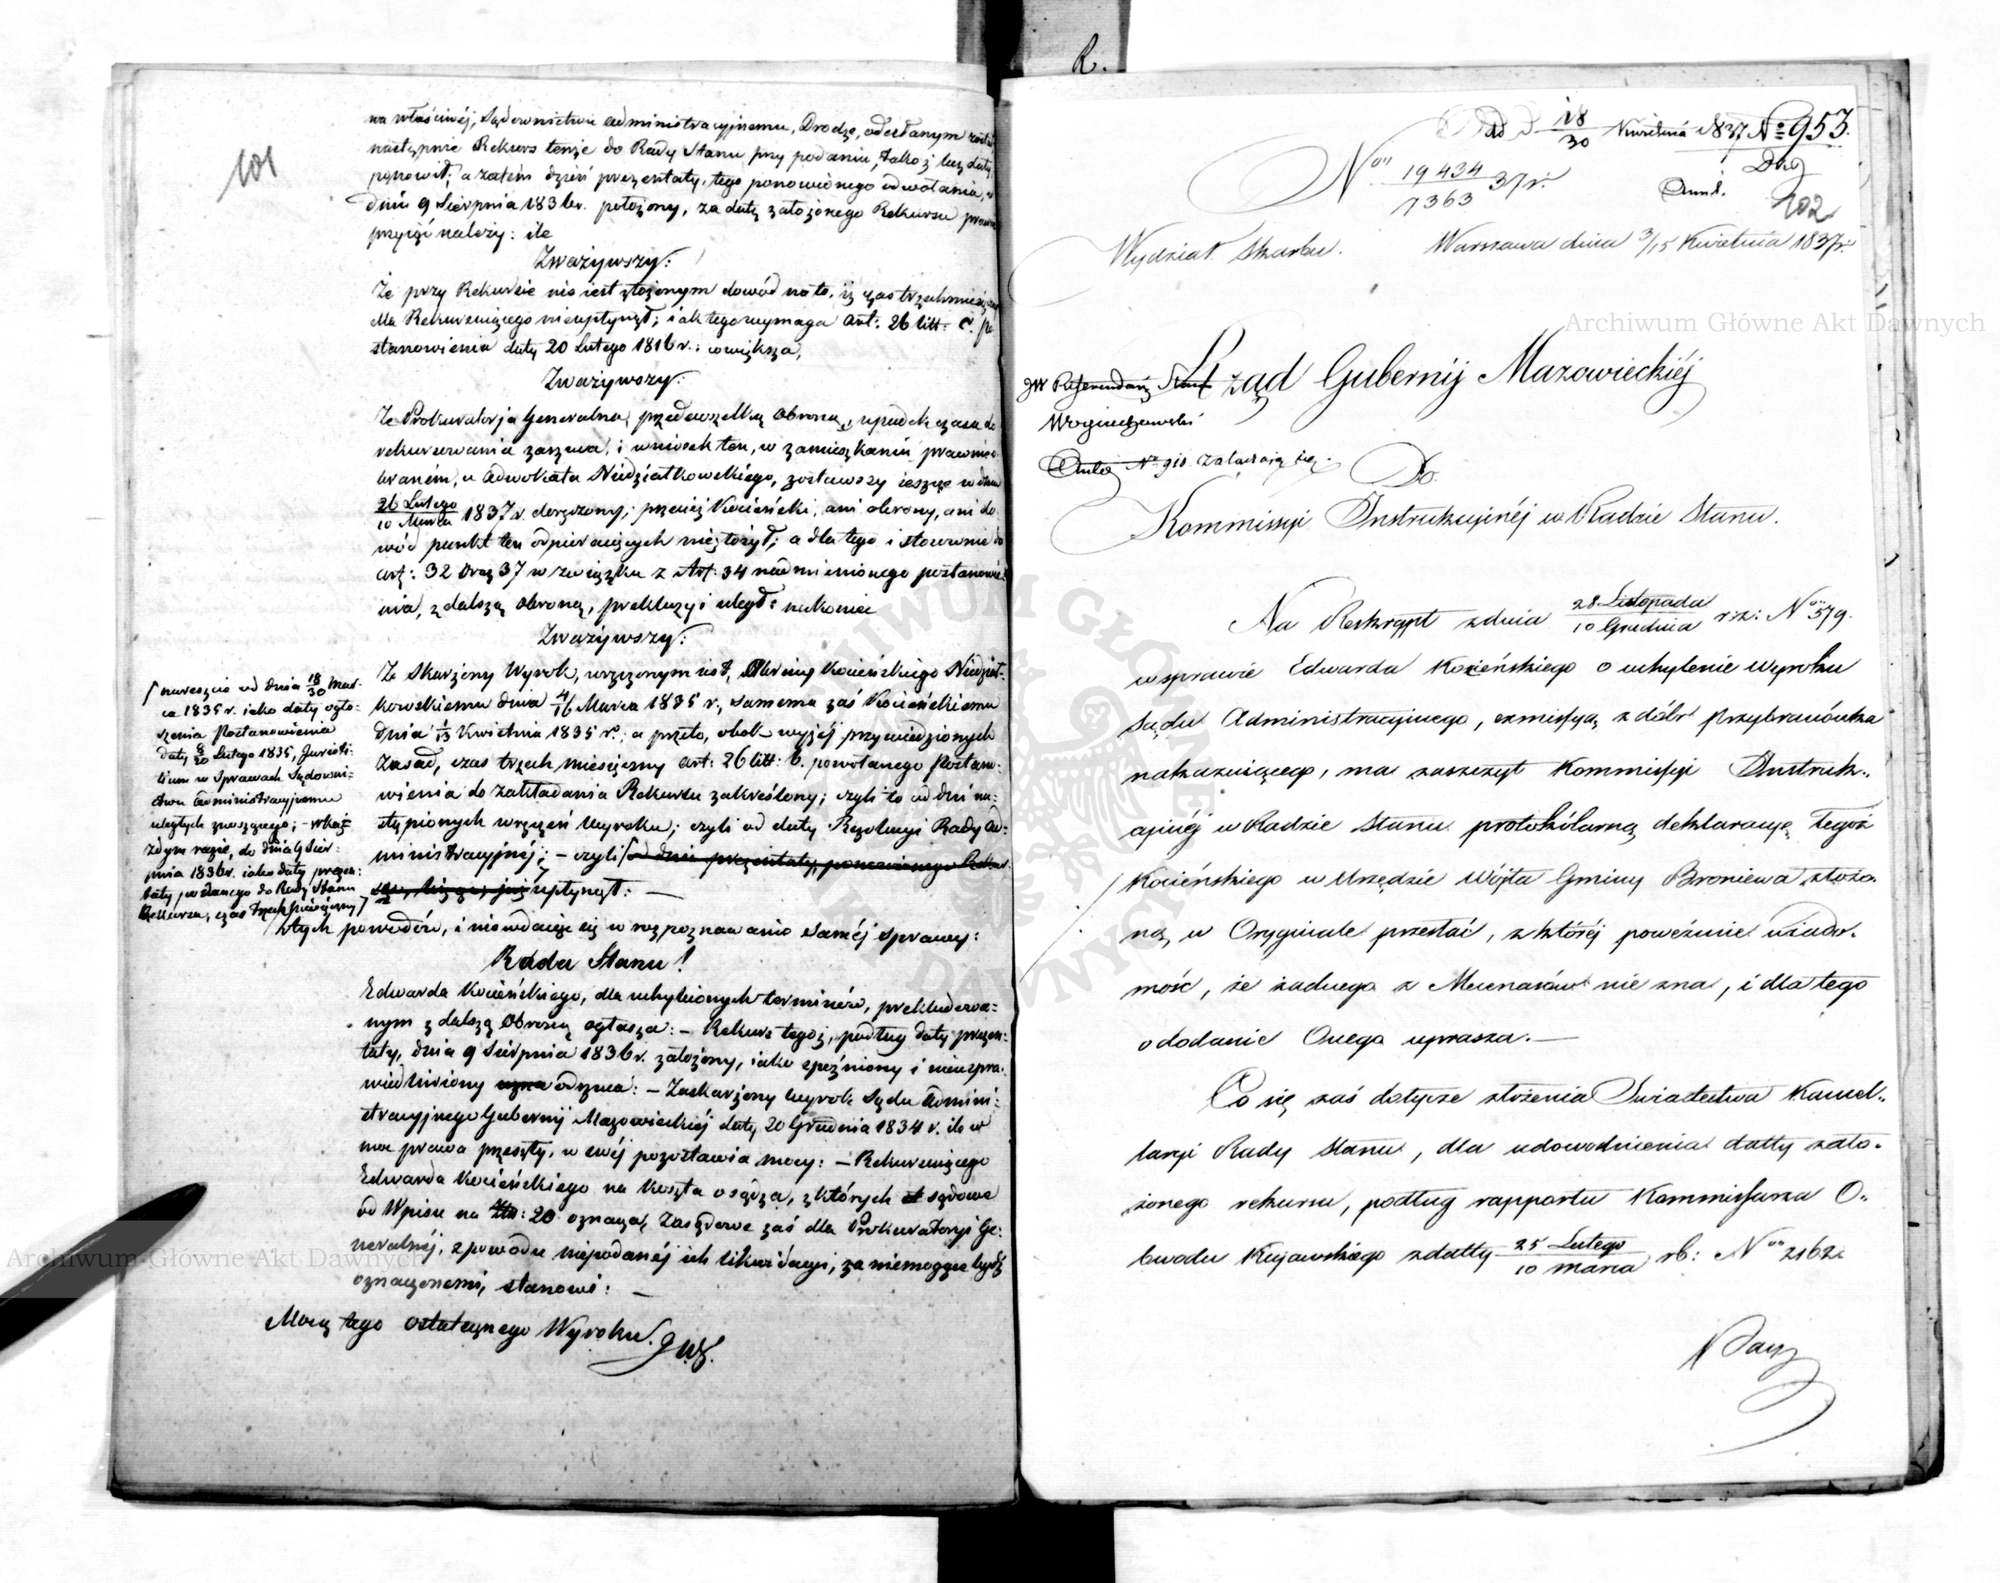 101
na właściwéj, Sądownictwu administracyjnemu, Drodze, odesłanym został
następnie Rekurs tenże do Rady Stanu przy podaniu, także bez daty
ponowił; a zatém dzień prezentaty, tego ponowionego odwołania, w
dniu 9 Sierpnia 1836r. położony, za datę założonego Rekursu prawnie
przyjąć należy: ile
Zważywszy:
Że przy Rekursie nie iest złożonym dowód na to, iż czas trzechmiesięczny
dla Rekurruiącego nieupłynął; iak tego wymaga art: 26 litt: C. po
stanowienia daty 20 Lutego 1816r.: a większa,
Zważywszy:
Że Prokuratorja Generalna, przedewszelką obroną, upadek czasu do
rekurowania zarzuca, i wniosek ten, w zamieszkaniu prawnie o
braném, u Adwokata Niedziałkowskiego, zostawszy ieszcze w dniu
26 Lutego
10 Marca 1837r. doręczony; przecież Kocieński, ani obrony, ani do
wód punkt ten odpieraiących niezłożył; a dla tego i stosownie do
art: 32 oraz 37 w związku z Art: 34 nadmienionego postanowie
nia, z dalszą obroną, prekluzyi uległ: nakoniec
Zważywszy:
Że Skarżony Wyrok, wręczonym iest, Obrońcy Kocieńskiego Niedział-
kowskiemu dnia 4/16 Marca 1835 r., samemu zaś Kocieńskiemu
dnia 1/13 Kwietnia 1835 r., a przeto, obok wyżéj przywiedzionych
Zasad, czas trzech miesięczny art: 26 litt: b. powołanego Postano-
wienia do zakładania Rekursu zakreślony; czyli to od dni na-
stąpionych wręczeń Wyroku; czyli od daty Rezolucyi Rady Ad-
ministracyjnéj; – czyli od dnia prezentaty, ponowionego Rekur
su, licząc, już upłynął: —
[ nareszcie od dnia 18/30 Mar-
ca 1835 r. iako daty ogło-
szenia Postanowienia
daty 8/20 Lutego 1835, Juristi-
tium w Sprawach Sądowni-
ctwu administracyjnemu
uległych znoszącego; – w każ-
zdym razie, do dnia 9 Sier-
pnia 1836r. iako daty prezen-
taty, podanego do Rady Stanu
Rekursu, czas trzechmiesięczny ]
z tych powodów, i niewdaiąc się w rozpoznawanie saméj sprawy:
Rada Stanu!
Edwarda Kocieńskiego, dla uchybionych terminów, prekludowa-
nym z dalszą Obroną ogłasza: – Rekurs tegoż, podług daty prezen-
taty, dnia 9 Sierpnia 1836r. założony, iako spóźniony i nieuspra-
wiedliwiony odrzuca: – Zaskarżony wyrok Sądu Admini-
stracyjnego Gubernij Mazowieckiéj daty 20 Grudnia 1834 r. ile w
moc prawa przeszły, w swéj pozostawia mocy: – Rekurruiącego
Edwarda Kocieńskiego na koszta osądza, z których sądowe
od Wpisu na Złt: 20 oznacza, Zasądowe zaś dla Prokuratoryi Ge-
neralnéj, z powodu niepodanéj ich likwidacyi, za niemogące bydź
oznaczonemi, stanowi: —
Mocą tego ostatecznego Wyroku.
R.
18/30 Kwietnia 1837 No 953.
No 19434/7363 37r.
102
Wydział Skarbu.
Warszawa dnia 3/15 Kwietnia 1837r.
Rząd Gubernij Mazowieckiéj
JW Referendarz Stanu
Wojciechowski
No 910. załatwia się.
Do
Kommissyi Instrukcyjnéj w Radzie Stanu.
Na Reskrypt z dnia 28 Listopada
10 Grudnia r.z: No 579.
w sprawie Edwarda Kocieńskiego o uchylenie Wyroku
Sądu Administracyjnego, exmissyą z dóbr Przybranówka
nakazuiącego, ma zaszczyt Kommissyi Instruk-
cyinéj w Radzie Stanu protokólarną deklaracyę tegoż
Kocieńskiego w Urzędzie Wójta Gminy Broniewa złożo-
ną, w Oryginale przesłać, z któréj poweźmie wiado-
mość, że żadnego z Mecenasów nie zna, i dla tego
o dodanie Onego uprasza. —
Co się zaś dotycze złożenia Swiadectwa Kancel-
laryi Rady Stanu, dla udowodnienia datty zało-
żonego rekursu, podług rapportu Kommissarza O-
bwodu Kujawskiego z datty 25 Lutego
10 Marca rb: No 2162.
Archiwum Główne Akt Dawnych
Archiwum Główne Akt Dawnych
ARCHIWUM GŁÓWNE AKT DAWNYCH